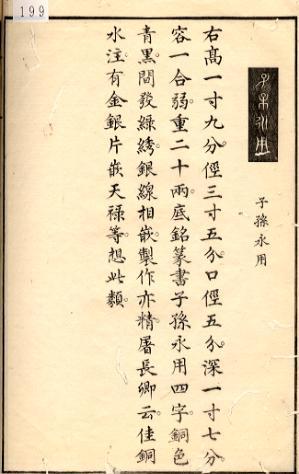 199
子孫永用
子孫永用
右髙一寸九分徑三寸五分口徑五分深一寸七分
容一合弱重二十兩底銘篆書子孫永用四字銅色
青黒間發綠綉銀線相嵌製作亦精屠長卿云佳銅
水注有金銀片嵌天禄等想此類